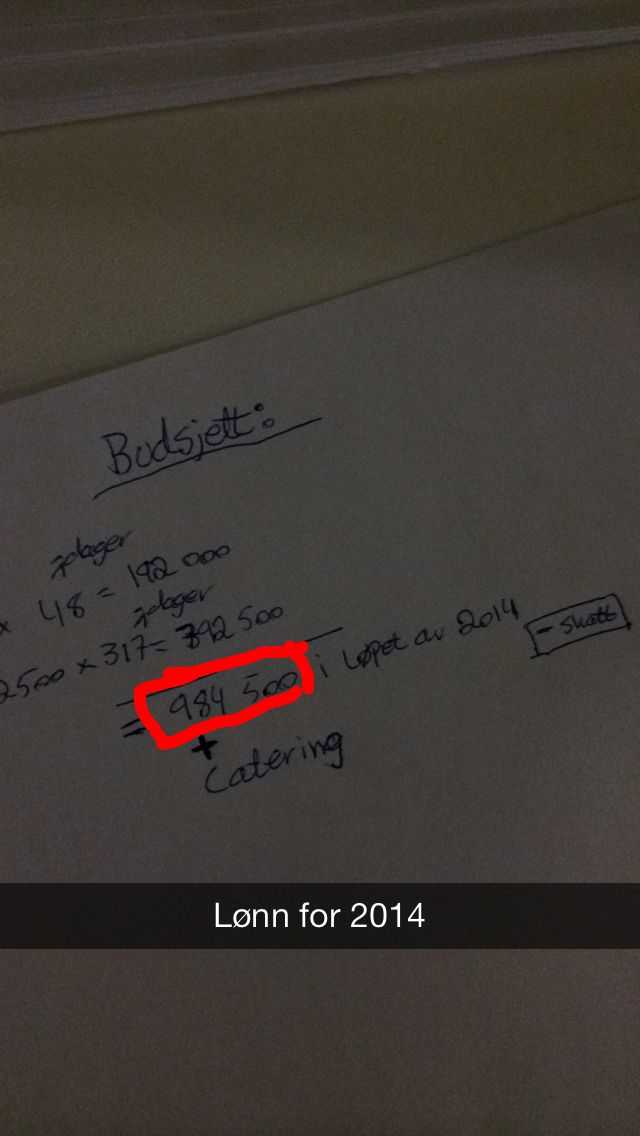 Budsjett:
dager
x 48 = 192 000
dager
2500 x 317 = 792 500
= 984 500 i løpet av 2014 - skatt
+
Catering
Lønn for 2014